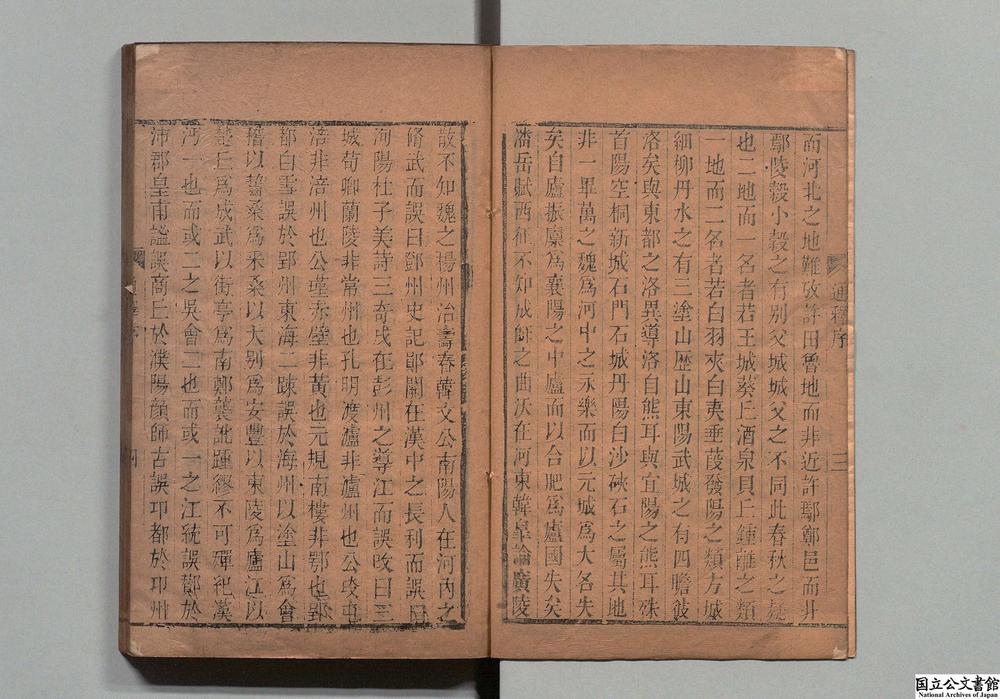 而河北之地難攷許田魯地而非近許鄢鄭邑而非
鄢陵穀小穀之有別父城城父之不同此春秋之疑
也二地而一名者若王城葵丘酒泉貝丘鍾離之類
一地而二名者若白羽夾白夷垂葭發陽之類方城
細柳丹水之有三塗山歷山東陽武城之有四瞻彼
洛矣與東都之洛異導洛自熊耳與宜陽之熊耳殊
首陽空桐新城石門石城丹陽白沙硤石之屬其地
非一畢萬之魏爲河中之永樂而以元城爲大名失
矣自廬振廩爲襄陽之中廬而以合肥爲廬國失矣
潘岳賦西征不知成師之曲沃在河東韓皐論廣陵
通釋序
三
散不知魏之揚州治壽春韓文公南陽人在河內之
脩武而誤曰鄧州史記鄖關在漢中之長利而誤曰
洵陽杜子美詩三奇戍在彭州之導江而誤改曰三
城荀卿蘭陵非常州也孔明渡瀘非瀘州也公安屯
涪非涪州也公瑾赤壁非黃也元規南樓非鄂也郢
都白雪誤於郢州東海二疎誤於海州以塗山爲會
稽以齧桑爲采桑以大別爲安豐以東陵爲廬江以
楚丘爲成武以街亭爲南鄭襲訛踵繆不可殫紀漢
沔一也而或二之吳會二也而或一之江統誤酇於
沛郡皇甫謐誤商丘於濮陽顔師古誤邛都於邛州
四
国立公文書館
National Archives of Japan